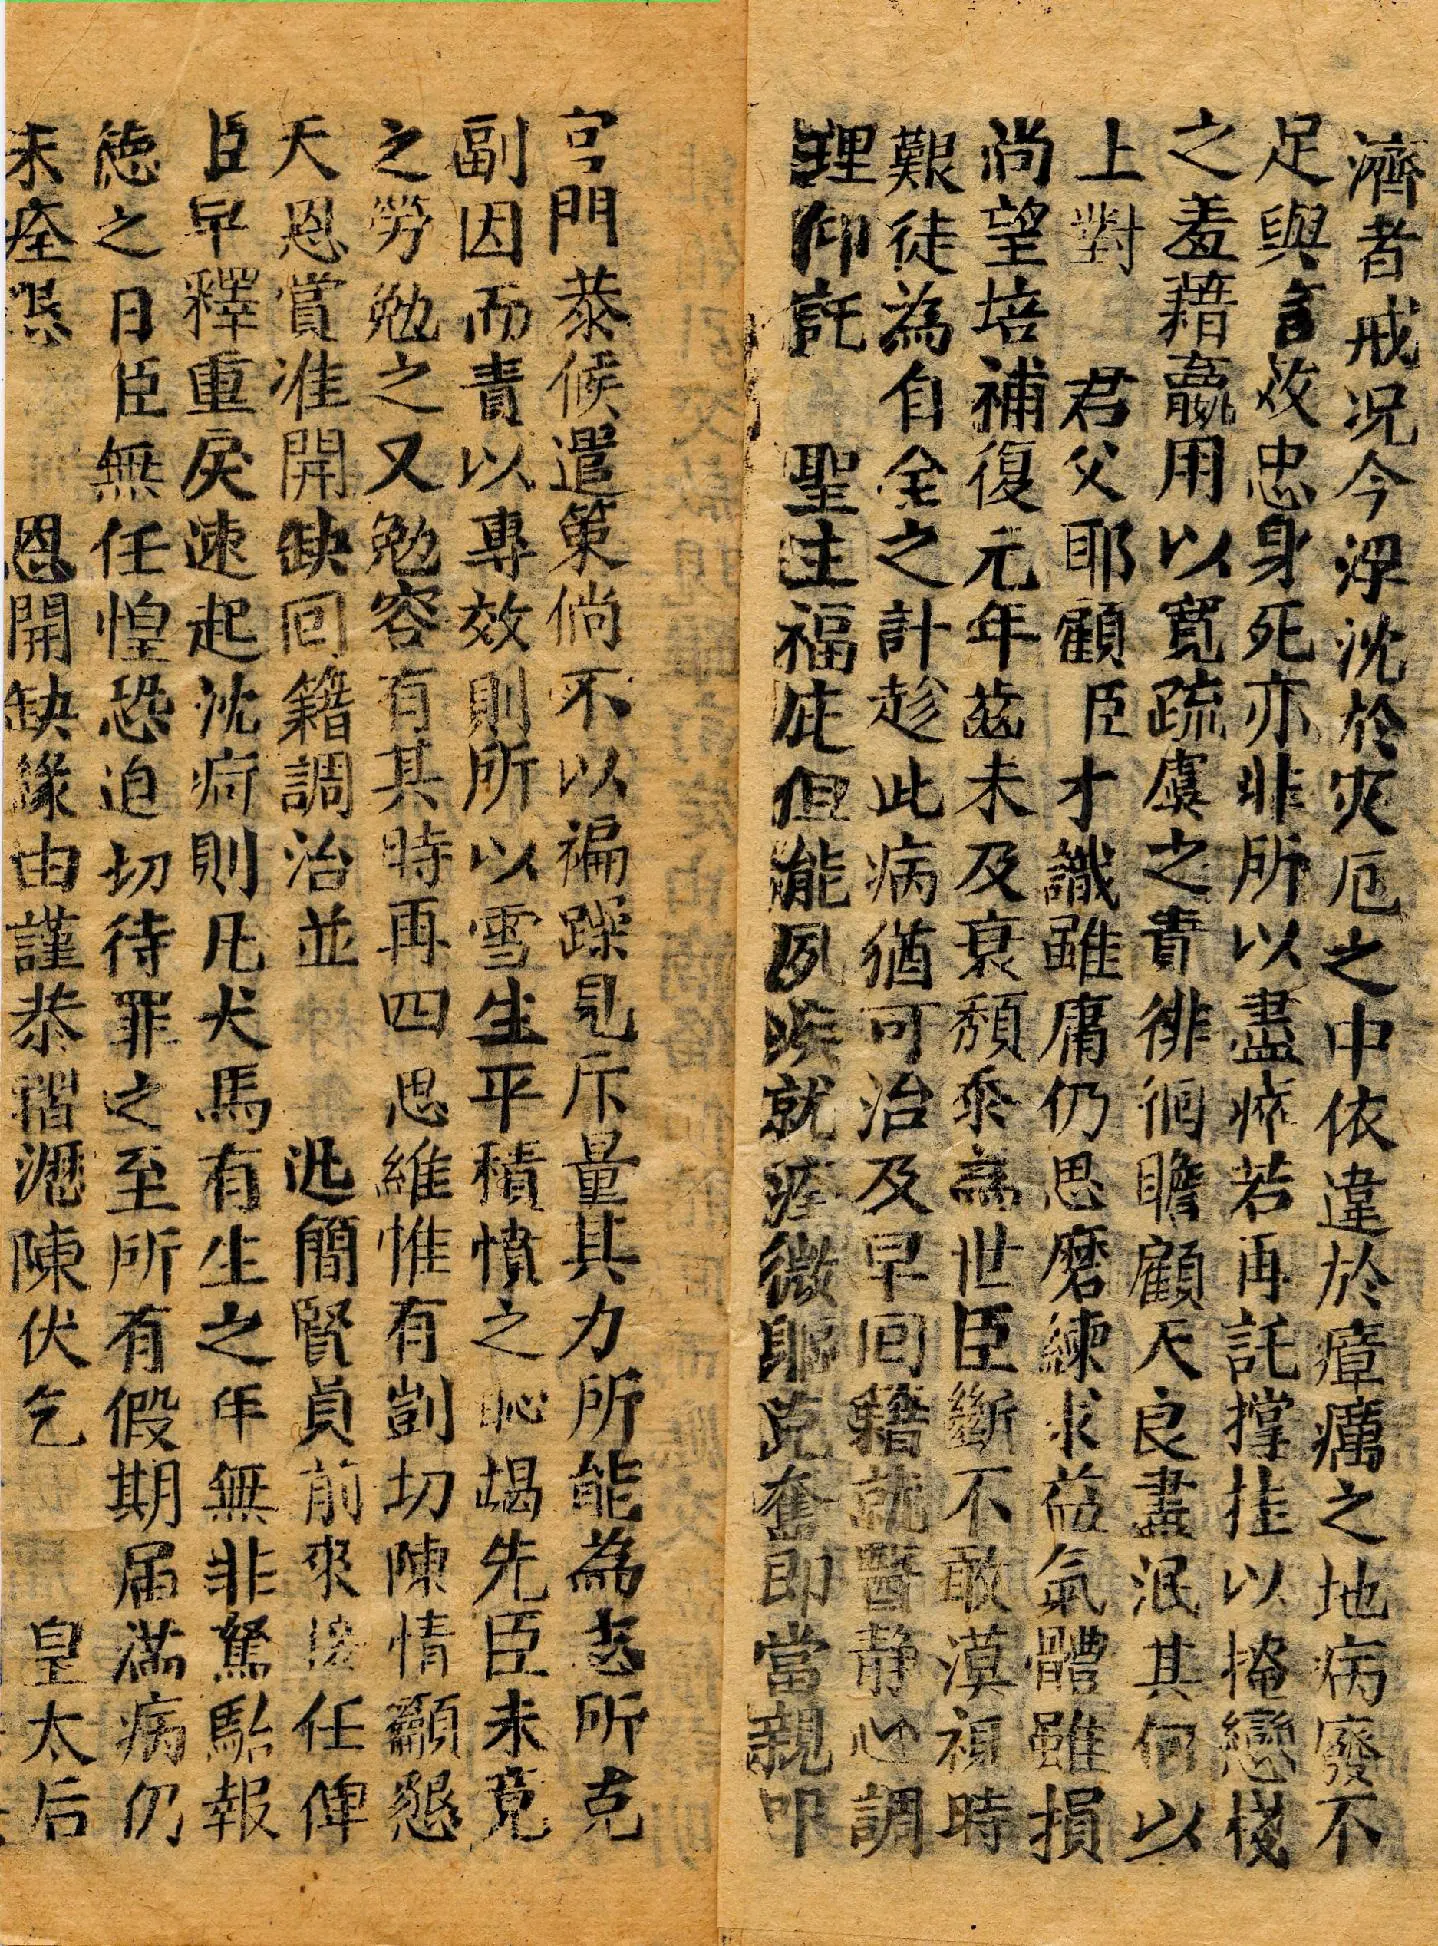 濟者戒况今浮沈於灾厄之中依違於瘴癘之地病廢不
足與言效忠身死亦非所以盡瘁若再託撑拄以掩戀棧
之羞藉羸用以寬疏虞之責徘徊瞻顧天良盡泯其何以
上對　君父耶顧臣才識雖庸仍思磨練求益氣體雖損
尚望培補復元年茲未及衰頹忝為世臣斷不敢漠視時
艱徒為自全之計趁此病猶可治及早回籍就醫静心調
理仰託　聖主福庇但能夙疾就痊微軀克奮即當親叩
宮門恭候遣策倘不以褊躁見斥量其力所能為志所克
副因而責以專效則所以雪生平積憤之恥竭先臣未竟
之勞勉之又勉容有其時再四思維惟有剴切陳情籲懇
天恩賞准開缺回籍調治並　迅簡賢員前來接任俾
臣早釋重戾速起沈疴則凡犬馬有生之年無非駑駘報
德之日臣無任惶恐迫切待罪之至所有假期届滿病仍
未痊懇　恩開缺緣由謹恭摺瀝陳伏乞　皇太后